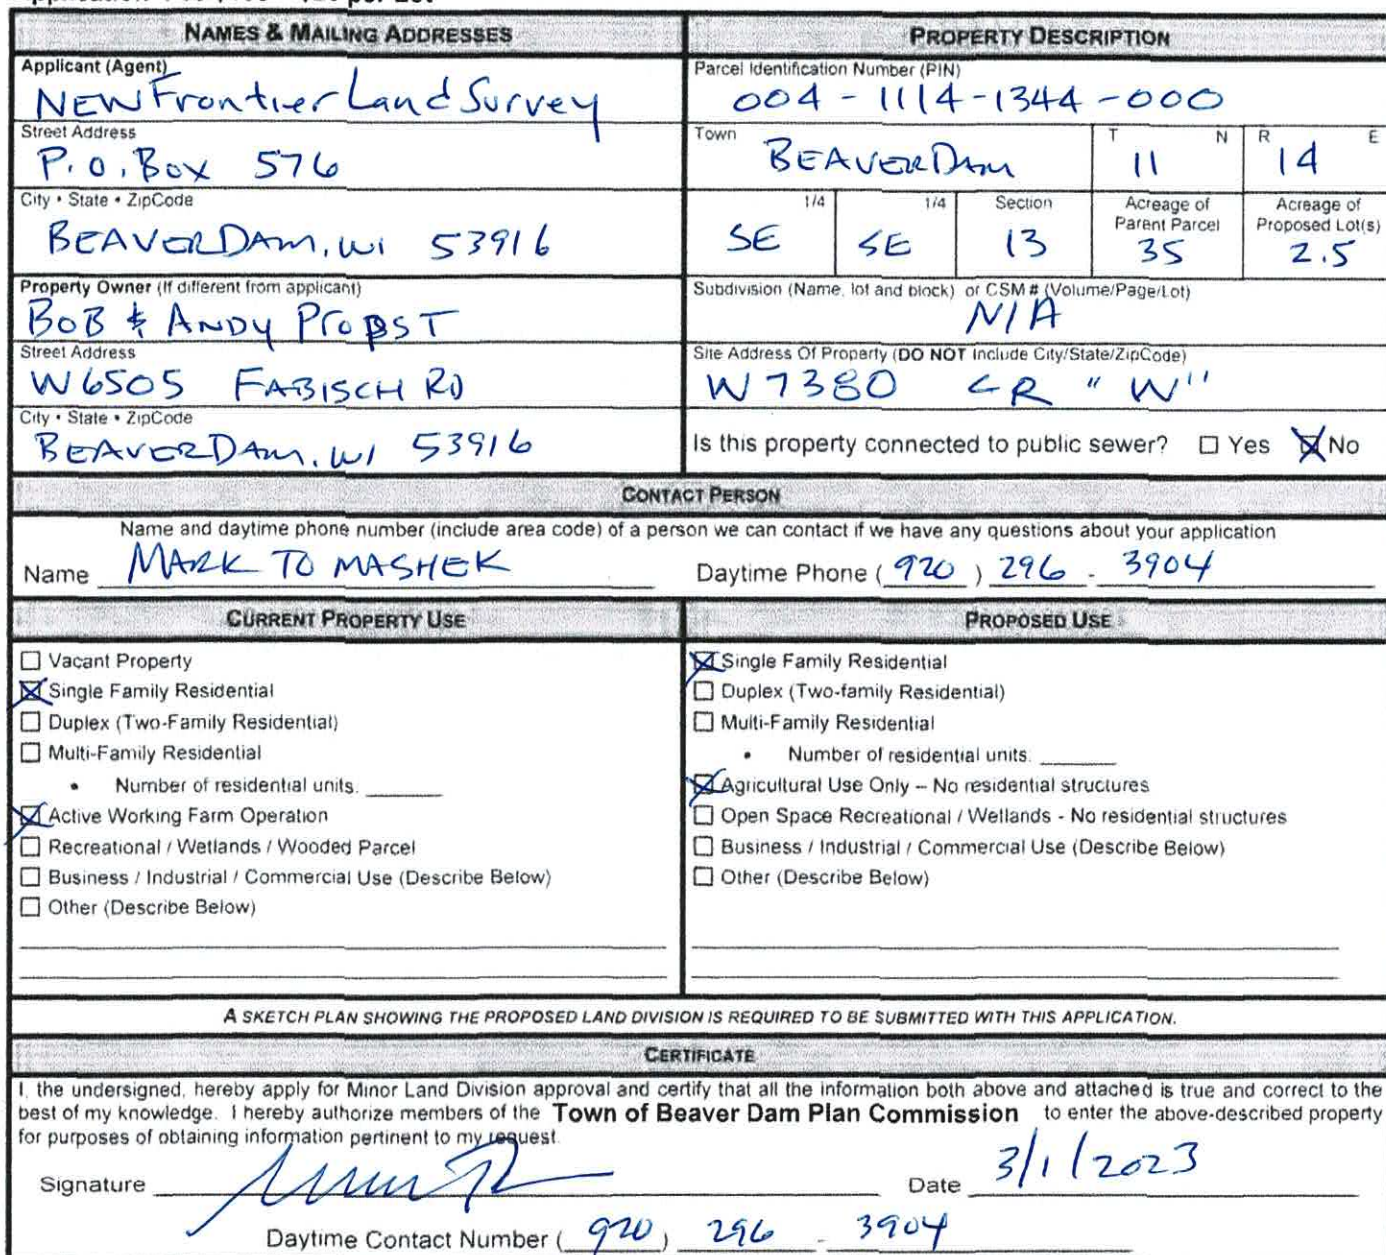 NAMES & MAILING ADDRESSES
Applicant (Agent)
NEW Frontier Land Survey
Street Address
P.O. Box 576
City • State • ZipCode
BEAVER DAM, WI 53916
Property Owner (If different from applicant)
BOB & ANDY PROBST
Street Address
W6505 FABISCH RD
City • State • ZipCode
BEAVER DAM, WI 53916
PROPERTY DESCRIPTION
Parcel Identification Number (PIN)
004-1114-1344-000
Town BEAVER DAM T 11 N R 14 E
SE 1/4 SE 1/4 Section 13 Acreage of Parent Parcel 35 Acreage of Proposed Lot(s) 2.5
Subdivision (Name, lot and block) or CSM # (Volume/Page/Lot)
N/A
Site Address Of Property (DO NOT Include City/State/ZipCode)
W7380 CR "W"
Is this property connected to public sewer? ☐ Yes ☒ No
CONTACT PERSON
Name and daytime phone number (include area code) of a person we can contact if we have any questions about your application
Name MARK TOMASHEK Daytime Phone (920) 296-3904
CURRENT PROPERTY USE
☐ Vacant Property
☒ Single Family Residential
☐ Duplex (Two-Family Residential)
☐ Multi-Family Residential
• Number of residential units. ______
☒ Active Working Farm Operation
☐ Recreational / Wetlands / Wooded Parcel
☐ Business / Industrial / Commercial Use (Describe Below)
☐ Other (Describe Below)
PROPOSED USE
☒ Single Family Residential
☐ Duplex (Two-family Residential)
☐ Multi-Family Residential
• Number of residential units. ______
☒ Agricultural Use Only – No residential structures
☐ Open Space Recreational / Wetlands - No residential structures
☐ Business / Industrial / Commercial Use (Describe Below)
☐ Other (Describe Below)
A SKETCH PLAN SHOWING THE PROPOSED LAND DIVISION IS REQUIRED TO BE SUBMITTED WITH THIS APPLICATION.
CERTIFICATE
I, the undersigned, hereby apply for Minor Land Division approval and certify that all the information both above and attached is true and correct to the
best of my knowledge. I hereby authorize members of the Town of Beaver Dam Plan Commission to enter the above-described property
for purposes of obtaining information pertinent to my request.
Signature Date 3/1/2023
Daytime Contact Number (920) 296-3904